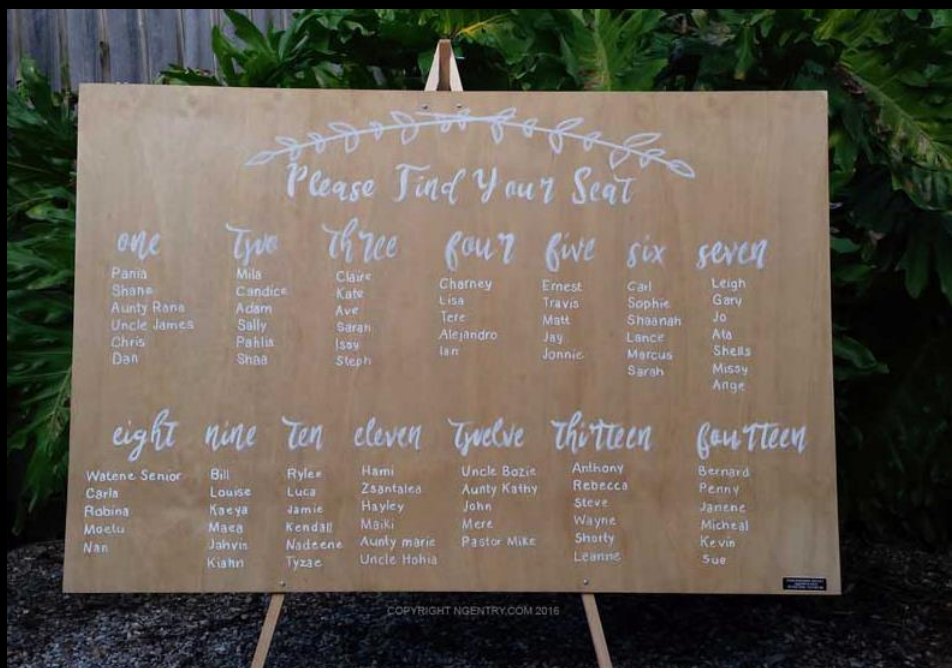 Please Find Your Seat
one
Pania
Shane
Aunty Rana
Uncle James
Chris
Dan
two
Mila
Candice
Adam
Sally
Pahlia
Shaa
three
Claire
Kate
Ave
Sarah
Issy
Steph
four
Charney
Lisa
Tere
Alejandro
Ian
five
Ernest
Travis
Matt
Jay
Jonnie
six
Carl
Sophie
Shaanah
Lance
Marcus
Sarah
seven
Leigh
Gary
Jo
Ata
Shells
Missy
Ange
eight
Watene Senior
Carla
Robina
Moetu
Nan
nine
Bill
Louise
Kaeya
Maea
Jahvis
Kiahn
ten
Rylee
Luca
Jamie
Kendall
Nadeene
Tyzae
eleven
Hami
Zsantalea
Hayley
Maiki
Aunty marie
Uncle Hohia
twelve
Uncle Bozie
Aunty Kathy
John
Mere
Pastor Mike
thirteen
Anthony
Rebecca
Steve
Wayne
Shorty
Leanne
fourteen
Bernard
Penny
Janene
Micheal
Kevin
Sue
COPYRIGHT NGENTRY.COM 2016